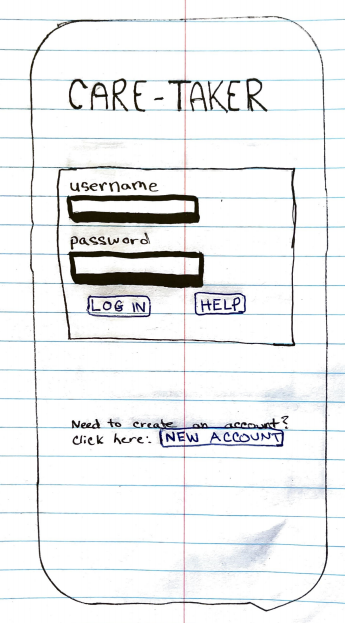 CARE-TAKER
username
password
LOG IN HELP
Need to create an account?
Click here: NEW ACCOUNT